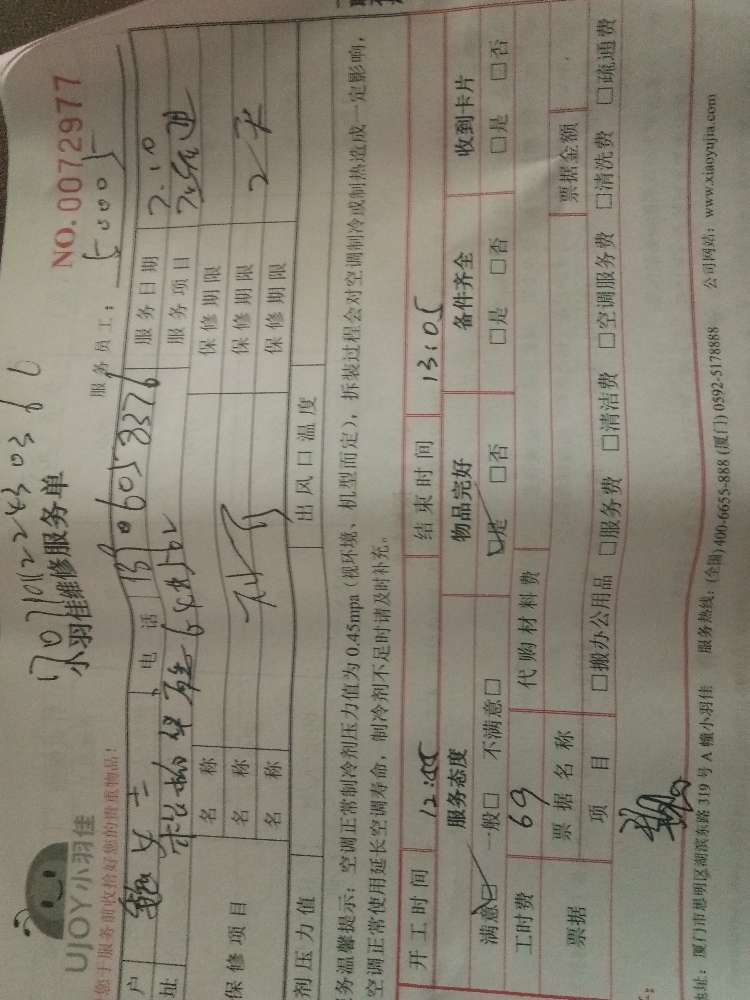 UJOY小羽佳
小羽佳维修服务单
NO.0072977
您于服务前收拾好您的贵重物品!
服务员工: 50005
户 女士 电话 服务日期 7.10
址 服务项目
保修项目 名称 保修期限
名称 保修期限
名称 保修期限
剂压力值 出风口温度
务温馨提示:空调正常制冷剂压力值为0.45mpa(视环境、机型而定),拆装过程会对空调制冷或制热造成一定影响,
空调正常使用延长空调寿命,制冷剂不足时请及时补充。
开工时间 结束时间 13:05
服务态度 物品完好 备件齐全 收到卡片
满意□ 一般□ 不满意□ □是 □否 □是 □否 □是 □否
工时费 69 代购材料费
票据 票据名称 票据金额
项目 □搬办公用品 □服务费 □清洁费 □空调服务费 □清洗费 □疏通费
地址:厦门市思明区湖滨东路319号A幢小羽佳 服务热线:(全国)400-6655-888 (厦门)0592-5178888 公司网站:www.xiaoyujia.com